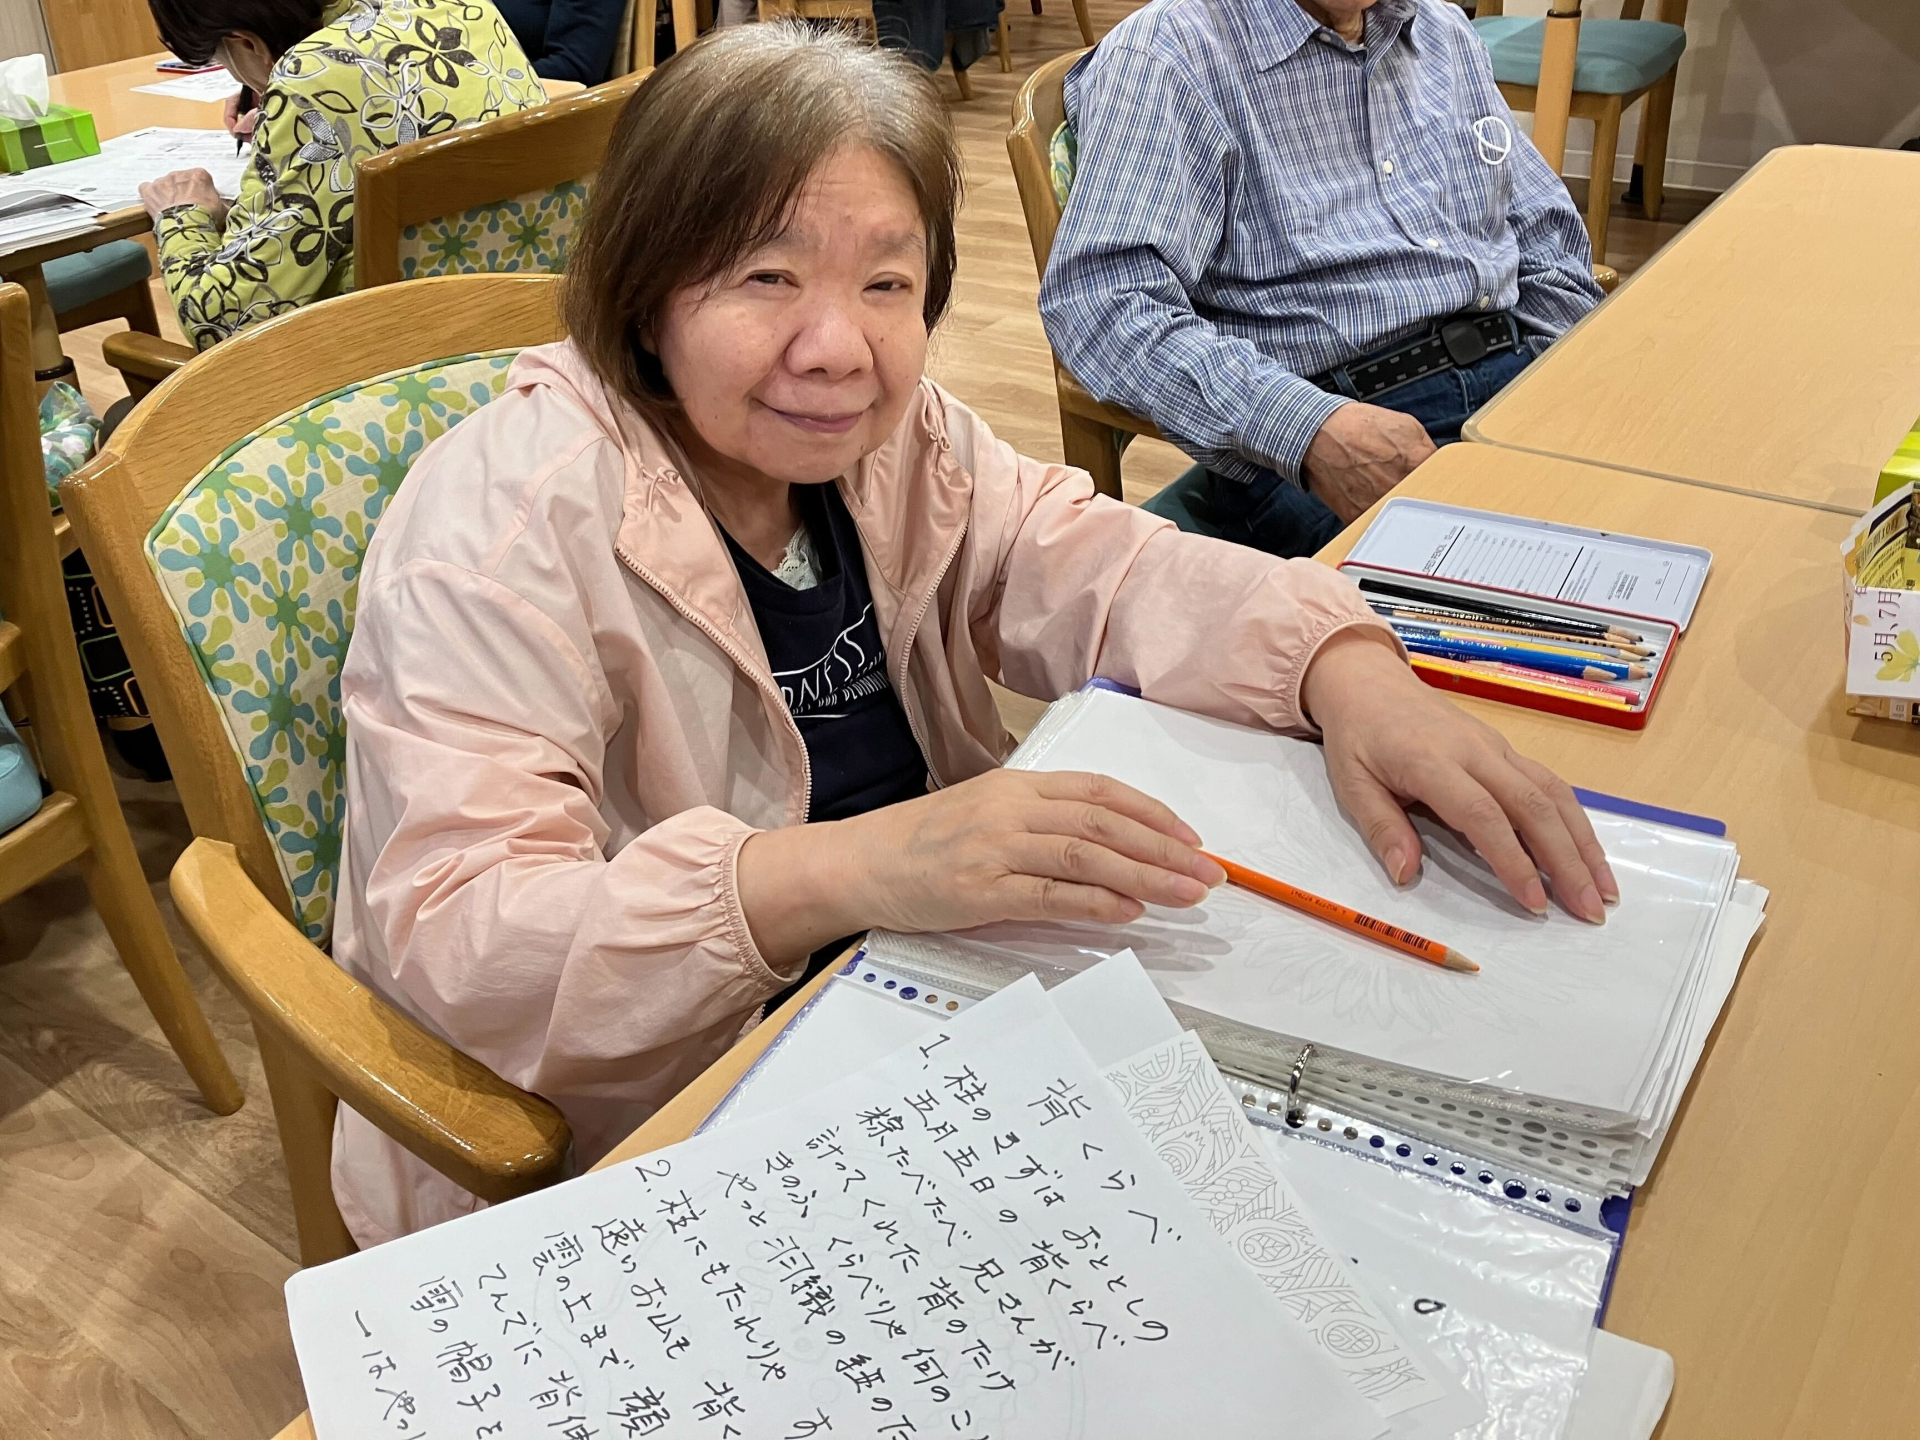 背くらべ
1. 柱のきずは おととしの
五月五日の 背くらべ
粽たべたべ 兄さんが
計ってくれた 背のたけ
きのふ くらべりゃ 何のこ
やっと羽織の 紐のた
2. 柱にもたれりゃ す
遠いお山も 背く
雲の上まで 顔
てんでに 背伸
雪の帽子を
一はやっ
5月、7月